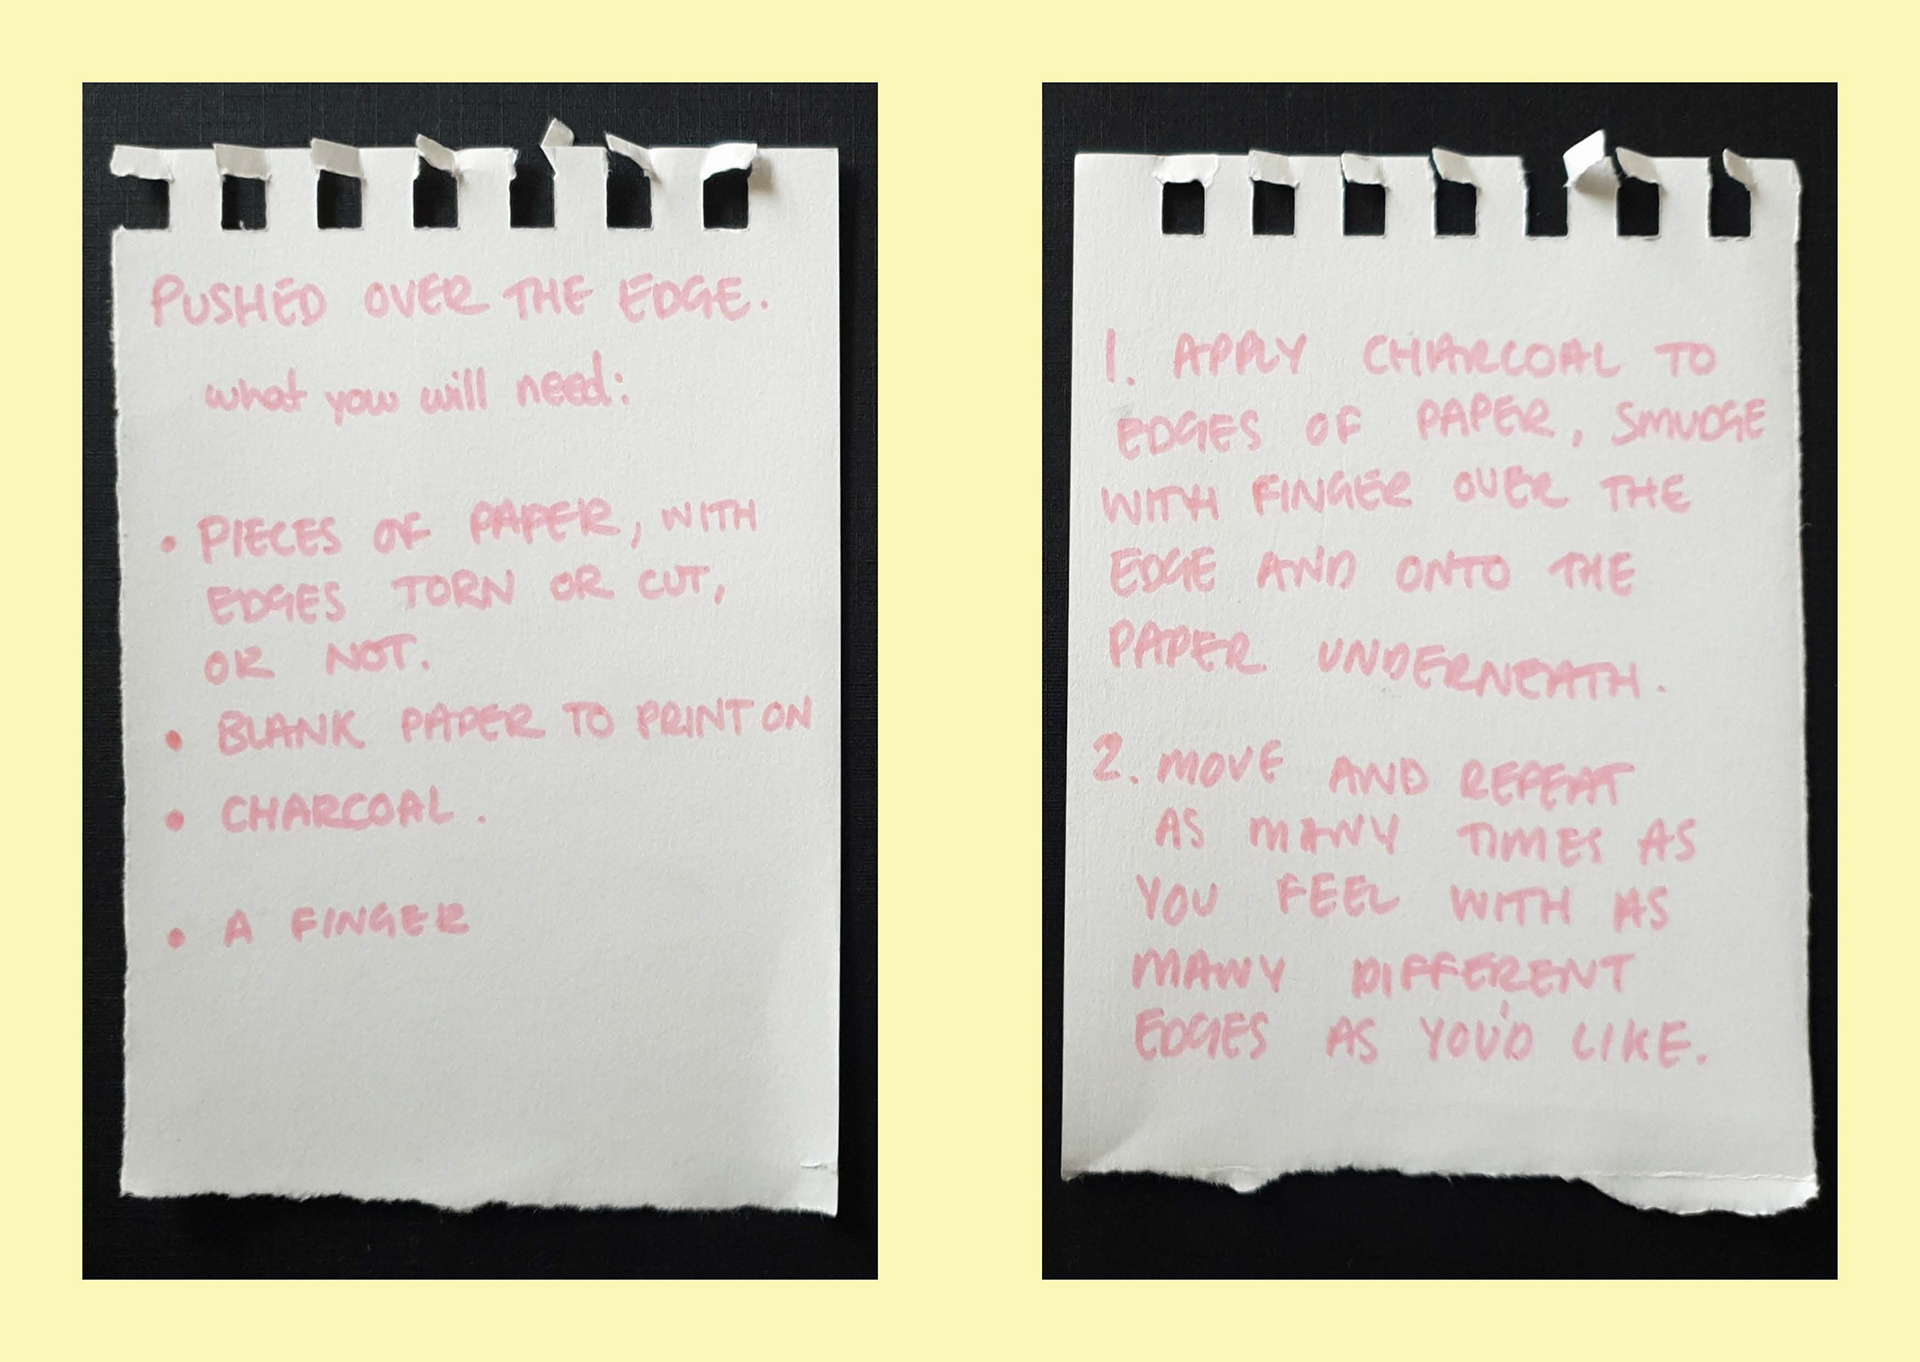 PUSHED OVER THE EDGE.
what you will need:
• PIECES OF PAPER, WITH
EDGES TORN OR CUT,
OR NOT.
• BLANK PAPER TO PRINT ON
• CHARCOAL.
• A FINGER
1. APPLY CHARCOAL TO
EDGES OF PAPER, SMUDGE
WITH FINGER OVER THE
EDGE AND ONTO THE
PAPER UNDERNEATH.
2. MOVE AND REPEAT
AS MANY TIMES AS
YOU FEEL WITH AS
MANY DIFFERENT
EDGES AS YOU'D LIKE.